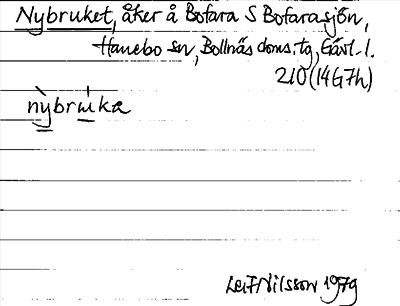 Nybruket, åker å Bofara S Bofarasjön,
Hanebo sn, Bollnäs doms.tg, Gävl. l.
210 (14G7h)
nỳbrúka
Leif Nilsson 1979